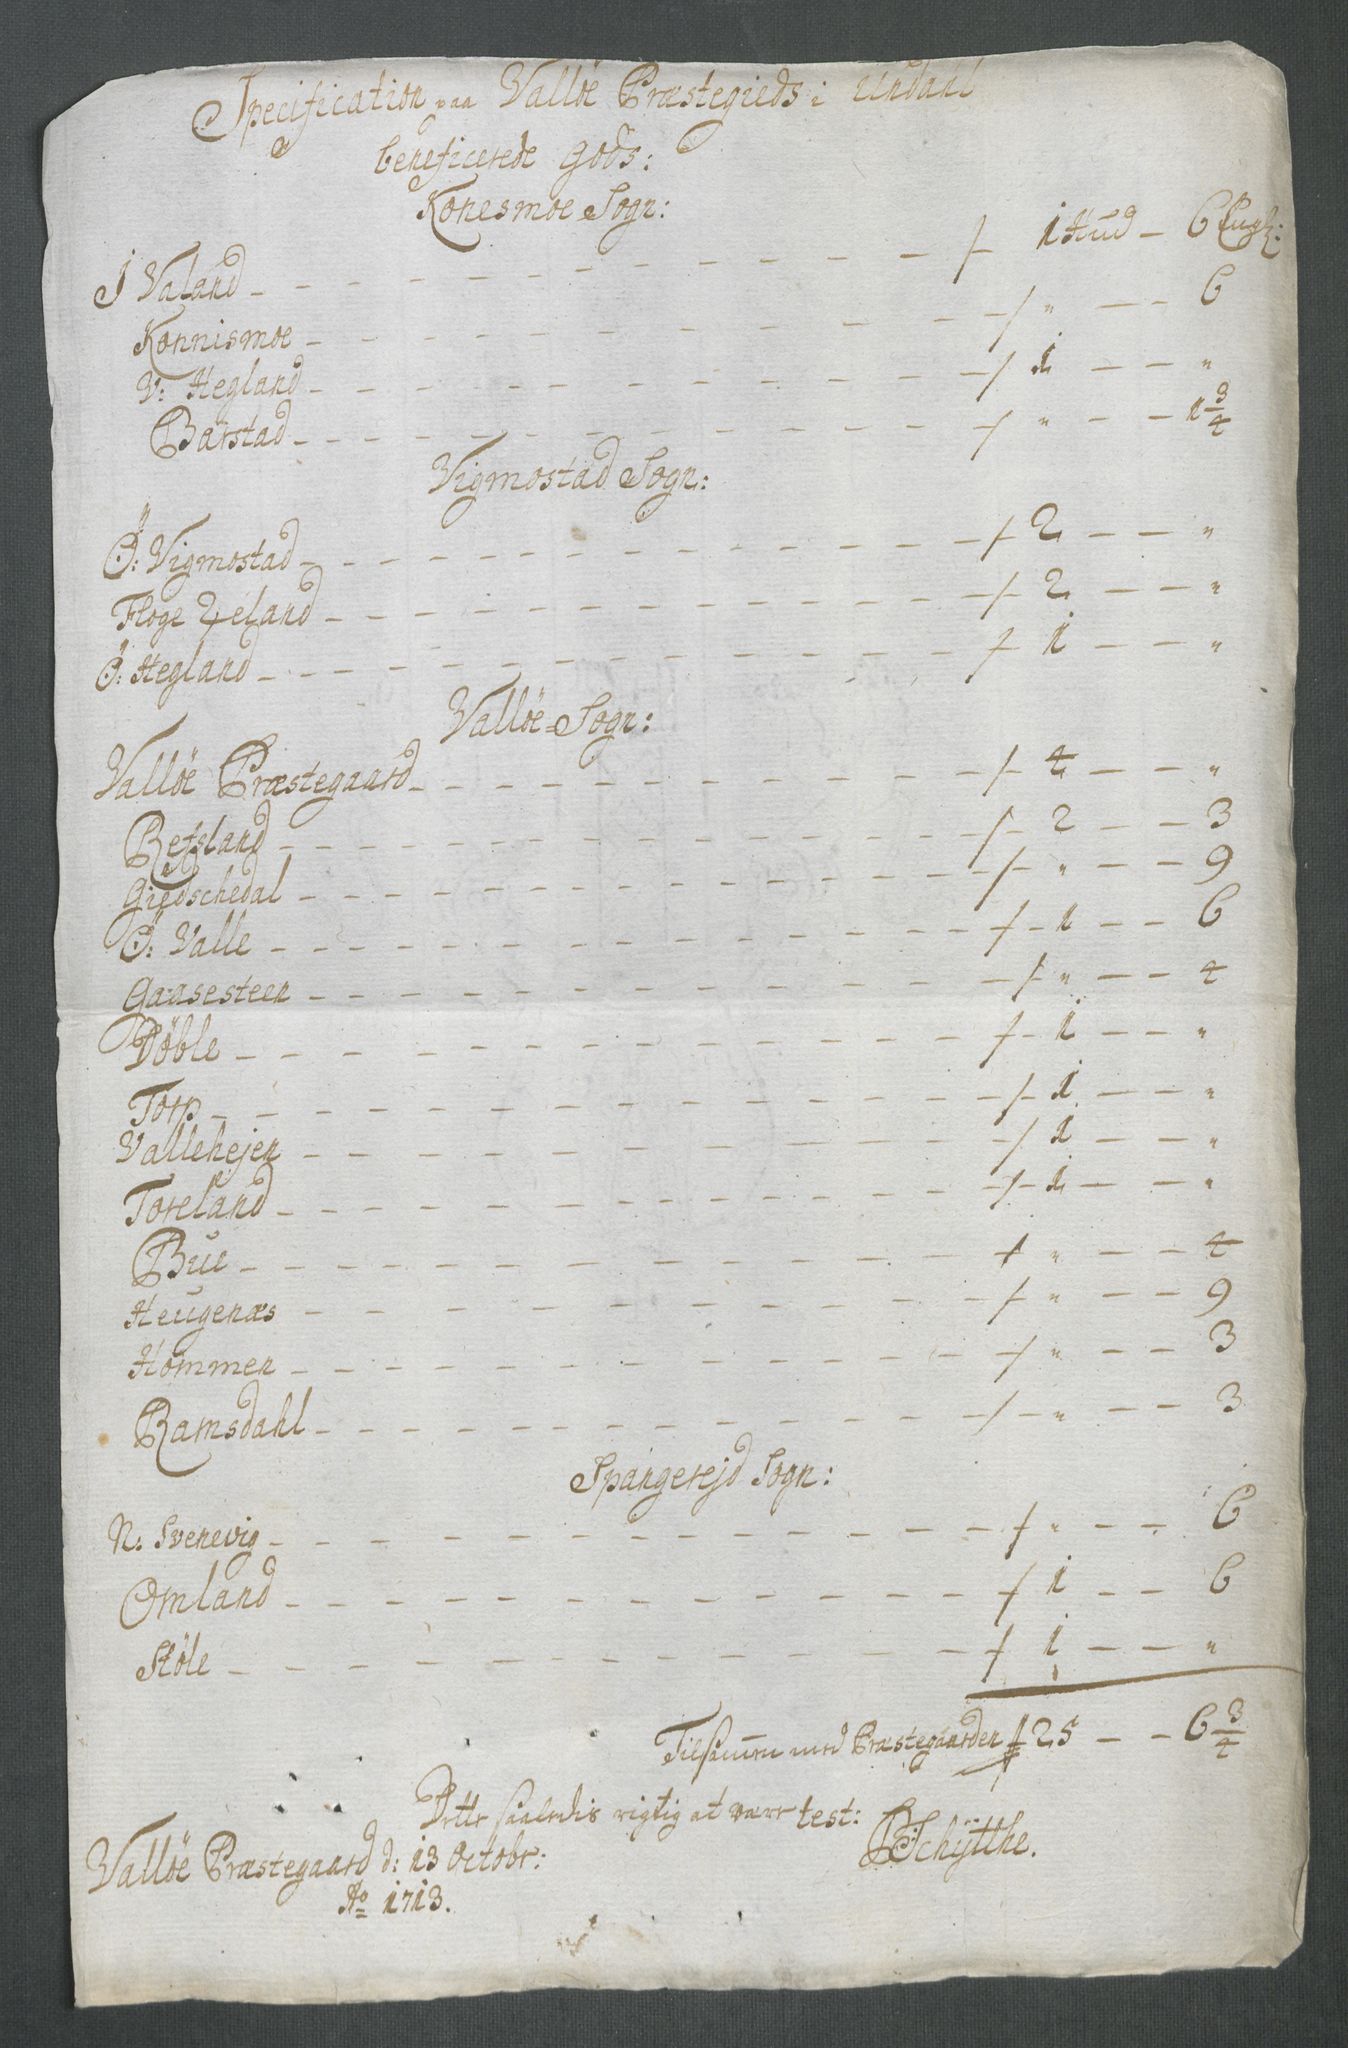 Specification paa Valløe Præstegields i Undahl
beneficerede Gods:
Konesmoe Sogn:
J Valand - 1 Hud - 6 Engl:
Konnismoe - " - 6
V: Hegland - 1 - "
Barstad - " - 1 3/4
Vigmostad Sogn:
Ö: Vigmostad - 2 - "
Floge Qeland - 2 - "
Ö: Hegland - 1 - "
Vallöe Sogn:
Vallöe Præstegaard - 4 - "
Refsland - 2 - 3
Giedschedal - " - 9
Ö: Valle - 1 - 6
Gaasesteen - " - 4
Döble - 1 - "
Torp - 1 - "
Vallehejen - 1 - "
Toreland - 1 - "
Bue - " - 4
Heugenæs - " - 9
Hommen - " - 3
Ramsdahl - " - 3
Spangerejd Sogn:
N: Svenevig - " - 6
Omland - 1 - 6
Stöle - 1 - "
Tilsammen med Præstegaarden 25 - 6 3/4
Dette saaledis rigtig at være test:
Vallöe Præstegaard d: 13 Octobr: BSchÿtthe.
Ao 1713.